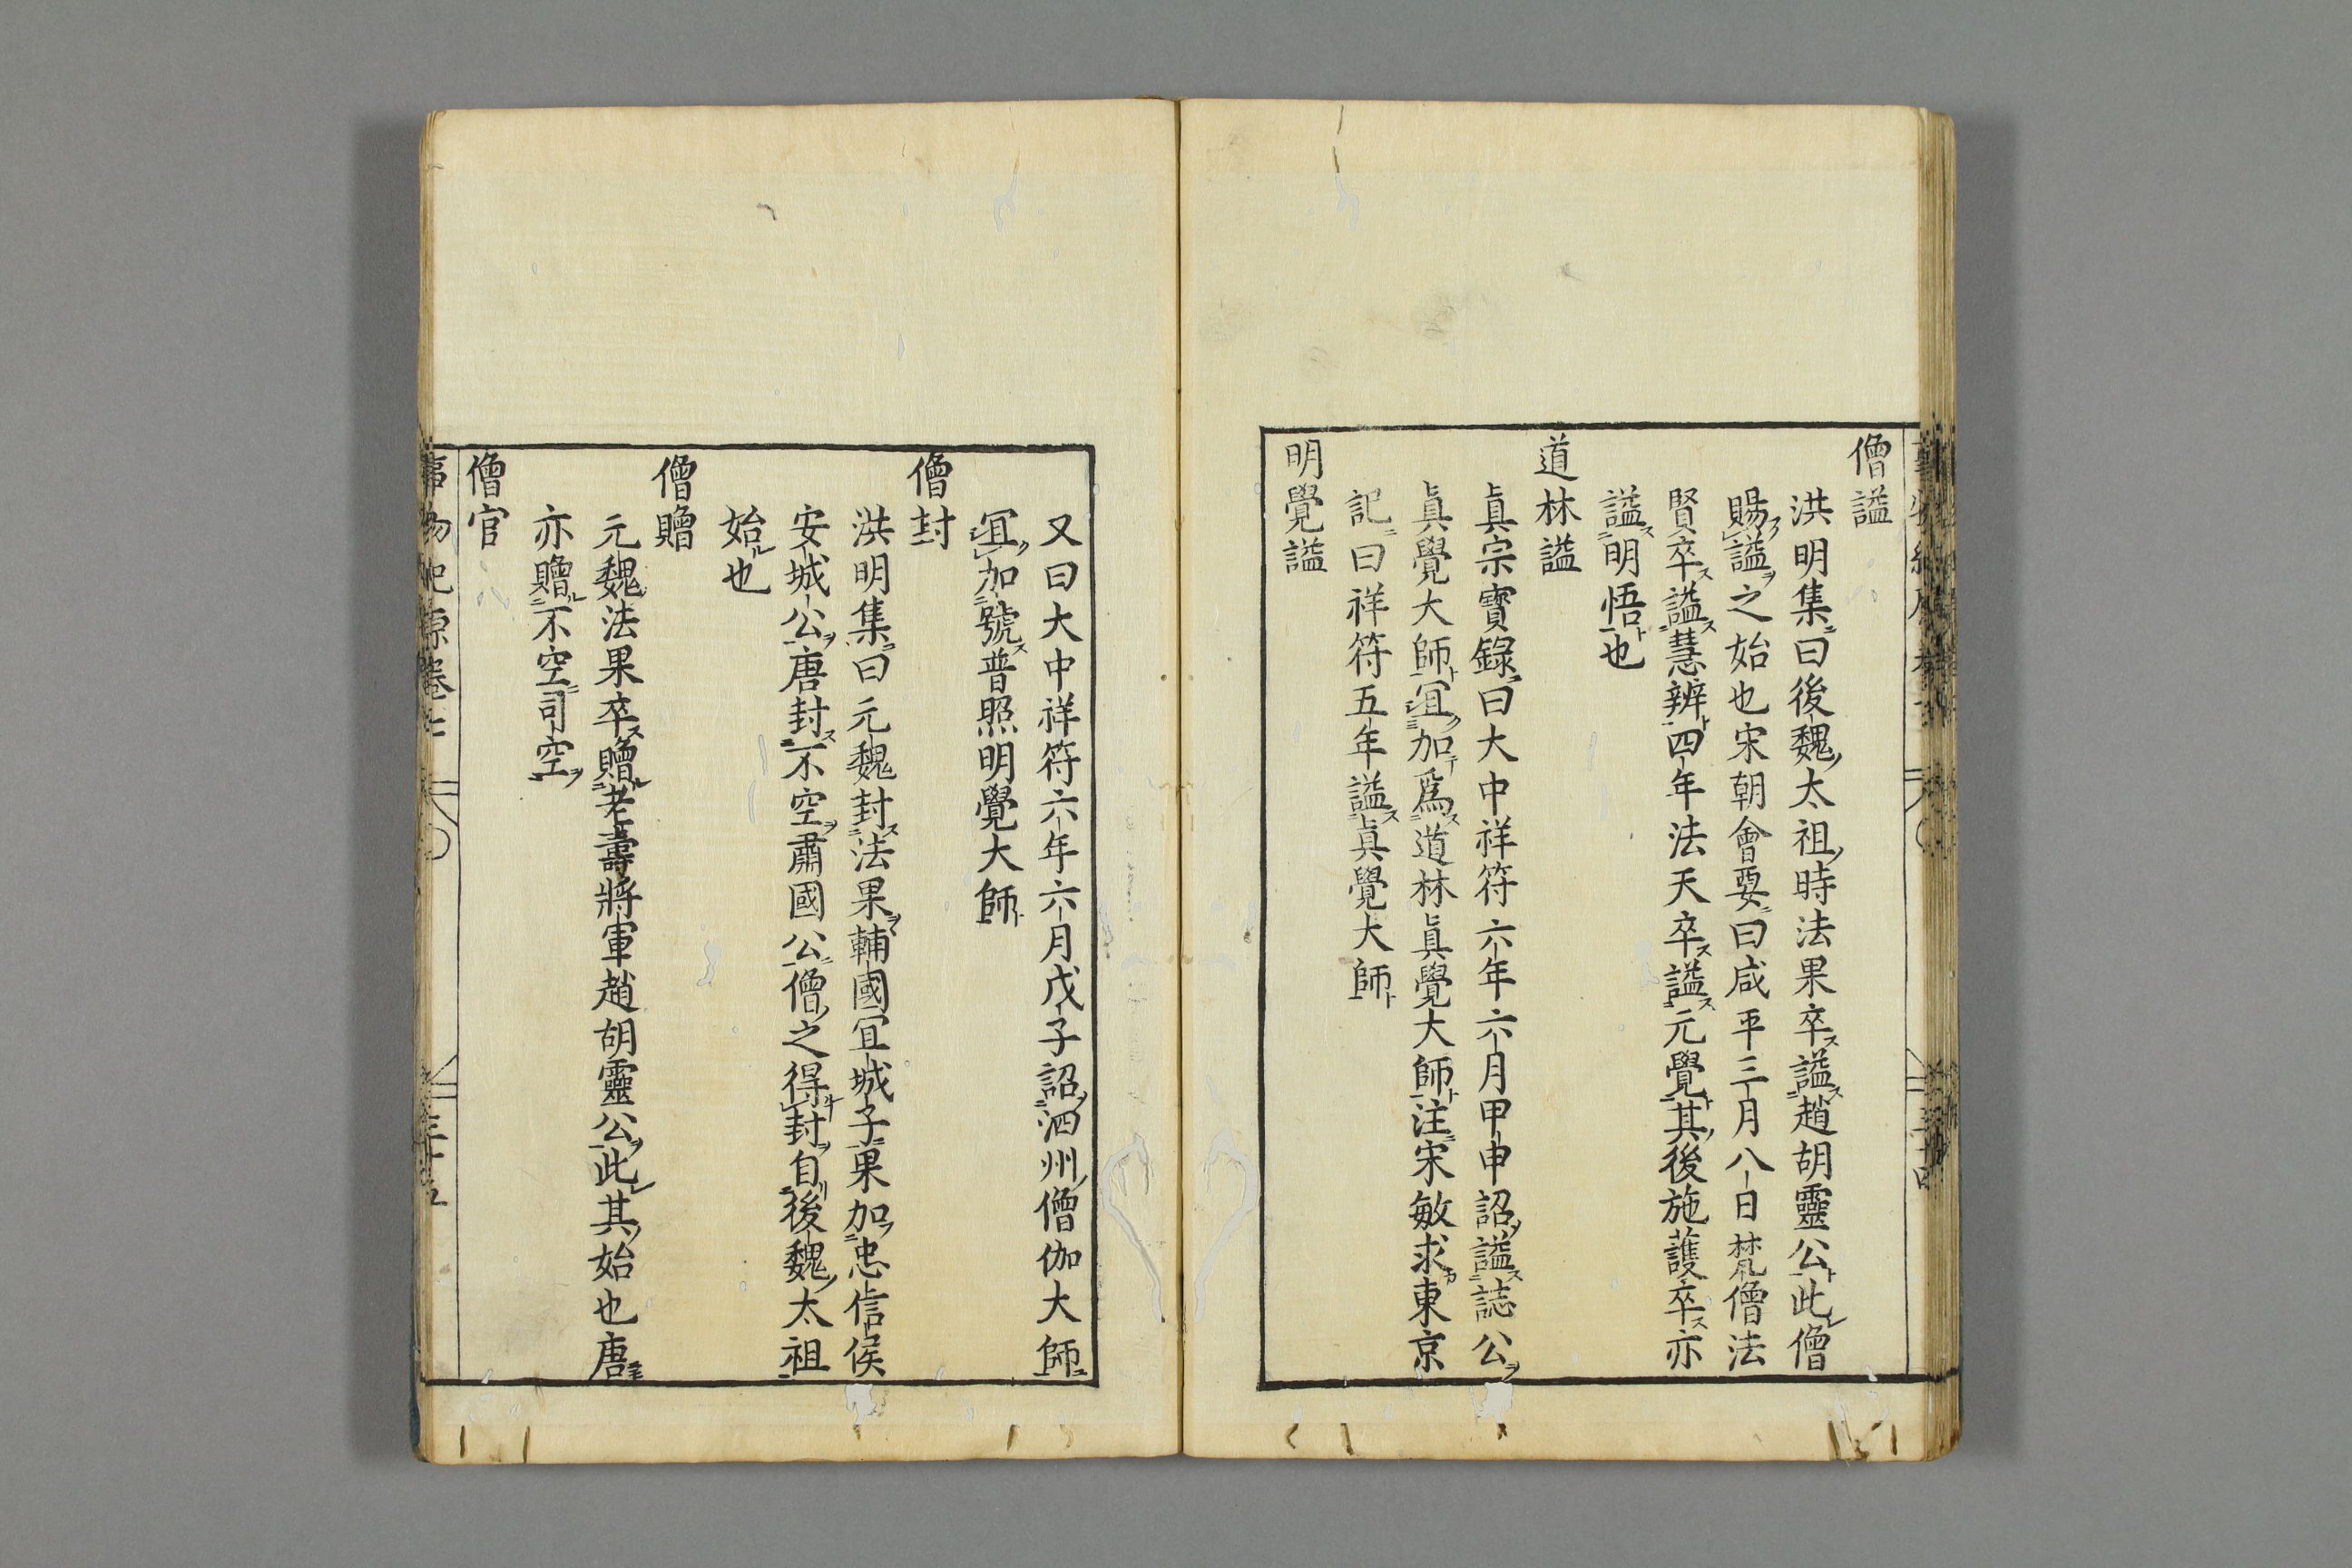 僧謚
洪明集曰後魏太祖時法果卒謚趙胡靈公此僧
賜謚之始也宋朝會要曰咸平三年月八日梵僧法
賢卒謚慧辨四年法天卒謚元覺其後施護卒亦
謚明悟也
道林謚
眞宗寳錄曰大中祥符六年六月甲申詔謚誌公
眞覺大師冝加爲道林眞覺大師注宋敏求東京
記曰祥符五年謚眞覺大師
明覺謚
又曰大中祥符六年六月戊子詔泗州僧伽大師
冝加號普照明覺大師
僧封
洪明集曰元魏封法果輔國冝城子果加忠信侯
安城公唐封不空肅國公僧之得封自後魏太祖
始也
僧贈
元魏法果卒贈老壽將軍趙胡靈公此其始也唐
亦贈不空司空
僧官
事物紀原卷七